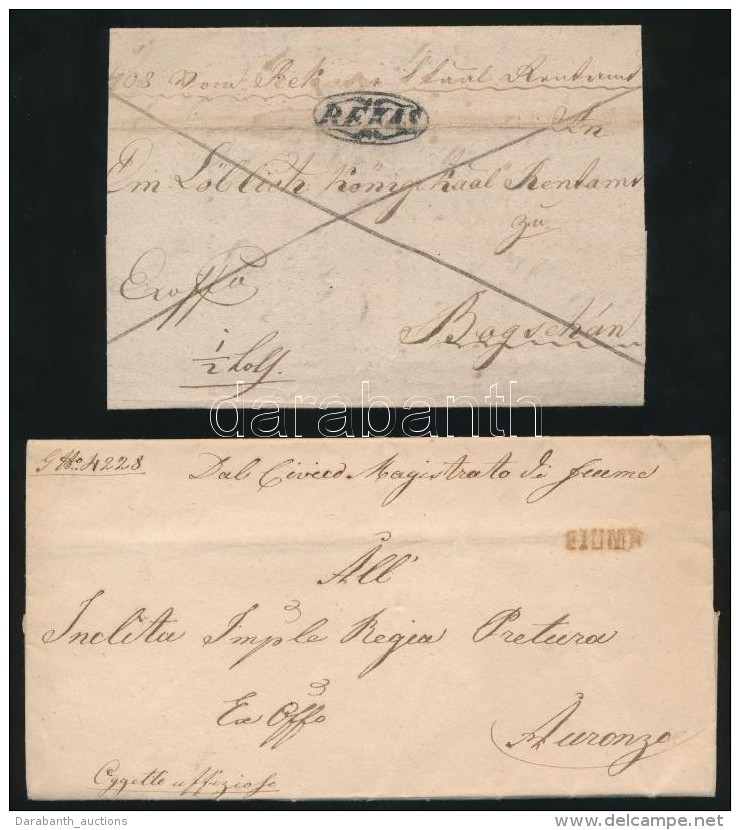 408 Vom Rek Kaal Rentamt
REKAS
An
Ein Löblich Königl Kaal Rentamt
zu
Exoffo
Bogschán
1/2 Loth.
darabanth
GNo. 4228
Dal Civico Magistrato di Fiume
FIUME
All'
Inclita Imple Regia Pretura
Ex Offo
Auronzo
Oggetto uffizioso
Darabanth_auctions
delcampe.net